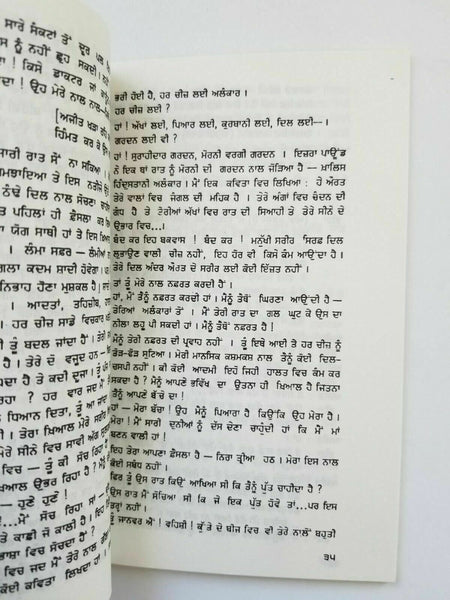 ਸਾਰੇ ਸੰਕਟਾਂ ਤੋਂ ਦੂਰ
ਨੂੰ ਨਹੀਂ ਛੂਹ ਸਕਦੀ।
ਕਿਸੇ ਡਾਕਟਰ ਜਾਂ
ਉਹ ਮੇਰੇ ਨਾਲ ਨਾਲ
ਹਿੰਮਤ ਕਰ ਕੇ
ਸਾਰੀ ਰਾਤ ਸੌਂ ਨਾ ਸਕਿਆ।
ਠੰਢੇ ਦਿਲ ਨਾਲ ਸੋਚਣਾ
ਪਹਿਲਾਂ ਹੀ ਫ਼ੈਸਲਾ ਕਰ
ਯੋਗ ਸਾਥੀ ਹਾਂ ਤੇ ਇਸ
ਲੰਮਾ ਸਫ਼ਰ—
ਕਦਮ ਸ਼ਾਦੀ ਹੋਵੇਗਾ।
ਨਿਭਾਹ ਹੋਣਾ ਮੁਸ਼ਕਲ ਹੈ।
ਆਦਤਾਂ, ਤਹਿਜ਼ੀਬ,
ਹਰ ਚੀਜ਼ ਸਾਡੇ ਵਿਚਕਾਰ
ਤੂੰ ਬਦਲ ਜਾਂਦਾ ਏਂ।
ਤੇਰੇ ਦੋ ਵਜੂਦ ਹਨ—
ਹੁੰਦਾ ਹੈ ਤੇ ਕਦੀ ਦੂਜਾ।
? ਹਰ ਵਾਰ ਜਦ ਮੈਂ
ਧਿਆਨ ਦਿਤਾ, ਤੂੰ ਆ ਜਾਂਦਾ
। ਤੇਰਾ ਖ਼ਿਆਲ ਮੇਰੇ ਸਰੀਰ
ਮੇਰੇ ਸੀਨੇ ਵਿਚ ਸਾਵੀ ਅੱਗ
ਵਿਚ — ਤੂੰ ਕੀ ਸੋਚ ਰਿਹਾ
ਖ਼ਿਆਲ ਉਭਰ ਰਿਹਾ ਹੈ ?
— ਹੁਣੇ ਹੁਣੇ !
...ਮੈਂ ਸੋਚ ਰਿਹਾ ਸਾਂ —
ਤੇ ਕਾਫ਼ੀ ਜੋ ਕਾਲੀ ਹੈ।
ਭਾਸ਼ਾ ਵਿਚ ਸੋਚਦਾ ਹੈਂ?
ਵਿਚ ਜਦ ਮੈਂ ਤੇਰੇ ਨਾਲ
ਕਦੀ ਕਵਿਤਾ ਲਿਖਦਾ ਹਾਂ।
ਭਰੀ ਹੋਈ ਹੈ, ਹਰ ਚੀਜ਼ ਲਈ ਅਲੰਕਾਰ।
ਹਰ ਚੀਜ਼ ਲਈ ?
ਹਾਂ ! ਅੱਖਾਂ ਲਈ, ਪਿਆਰ ਲਈ, ਕੁਰਬਾਨੀ ਲਈ, ਦਿਲ ਲਈ—।
ਗਰਦਨ ਲਈ ਵੀ ?
ਹਾਂ ! ਸੁਰਾਹੀਦਾਰ ਗਰਦਨ, ਮੋਰਨੀ ਵਰਗੀ ਗਰਦਨ । ਇਜ਼ਰਾ ਪਾਊਂਡ
ਨੇ ਇਕ ਥਾਂ ਰਾਤ ਨੂੰ ਮੋਰਨੀ ਦੀ ਗਰਦਨ ਨਾਲ ਜੋੜਿਆ ਹੈ — ਖ਼ਾਲਿਸ
ਹਿੰਦੁਸਤਾਨੀ ਅਲੰਕਾਰ । ਮੈਂ ਇਕ ਕਵਿਤਾ ਵਿਚ ਲਿਖਿਆ : ਹੇ ਔਰਤ
ਤੇਰੇ ਵਾਲਾਂ ਵਿਚ ਜੰਗਲ ਦੀ ਮਹਿਕ ਹੈ । ਤੇਰੇ ਅੰਗਾਂ ਵਿਚ ਚੰਦਨ ਦੀ
ਗੰਧ ਹੈ ਤੇ ਤੇਰੀਆਂ ਅੱਖਾਂ ਵਿਚ ਰਾਤ ਦੀ ਸਿਆਹੀ ਤੇ ਤੇਰੇ ਸੀਨੇ ਦੇ
ਉਭਾਰ ਵਿਚ...।
ਬੰਦ ਕਰ ਇਹ ਬਕਵਾਸ ! ਬੰਦ ਕਰ ! ਮਨੁੱਖੀ ਸਰੀਰ ਸਿਰਫ਼ ਦਿਲ
ਲੁਭਾਉਣ ਵਾਲੀ ਚੀਜ਼ ਨਹੀਂ, ਇਹ ਹੋਰ ਵੀ ਕਿਸੇ ਕੰਮ ਆਉਂਦਾ ਹੈ।
ਤੇਰੇ ਦਿਲ ਅੰਦਰ ਔਰਤ ਦੇ ਸਰੀਰ ਲਈ ਕੋਈ ਇੱਜ਼ਤ ਨਹੀਂ।
ਤਾਂ ਤੂੰ ਮੇਰੇ ਨਾਲ ਨਫ਼ਰਤ ਕਰਦੀ ਹੈਂ।
ਹਾਂ, ਮੈਂ ਤੈਨੂੰ ਨਫ਼ਰਤ ਕਰਦੀ ਹਾਂ ! ਮੈਨੂੰ ਤੈਥੋਂ ਘਿਰਣਾ ਆਉਂਦੀ ਹੈ —
ਤੇਰਿਆਂ ਅਲੰਕਾਰਾਂ ਤੋਂ । ਮੈਂ ਤੇਰੀ ਰਾਤ ਦਾ ਗਲ ਘੁਟ ਕੇ ਉਸ ਦਾ
ਨੀਲਾ ਲਹੂ ਪੀ ਸਕਦੀ ਹਾਂ ! ਮੈਨੂੰ ਤੈਥੋਂ ਨਫ਼ਰਤ ਹੈ !
ਮੈਨੂੰ ਤੇਰੀ ਨਫ਼ਰਤ ਦੀ ਪ੍ਰਵਾਹ ਨਹੀਂ। ਤੂੰ ਇਥੇ ਆਈ ਤੇ ਹਰ ਚੀਜ਼ ਨੂੰ
ਤੋੜ-ਫੋੜ ਸੁਟਿਆ । ਮੇਰੀ ਮਾਨਸਿਕ ਕਸ਼ਮਕਸ਼ ਨਾਲ ਤੈਨੂੰ ਕੋਈ ਦਿਲ-
ਚਸਪੀ ਨਹੀਂ ! ਕੀ ਕੋਈ ਆਦਮੀ ਇਹੋ ਜਿਹੀ ਹਾਲਤ ਵਿਚ ਕੰਮ ਕਰ
ਸਕਦਾ ਹੈ ? ਮੈਨੂੰ ਆਪਣੇ ਭਵਿੱਖ ਦਾ ਉਤਨਾ ਹੀ ਖ਼ਿਆਲ ਹੈ ਜਿਤਨਾ
ਤੈਨੂੰ ਆਪਣੇ ਬੱਚੇ ਦਾ।
ਹਾਂ — ਮੇਰਾ ਬੱਚਾ ! ਉਹ ਮੈਨੂੰ ਪਿਆਰਾ ਹੈ ਕਿਉਂਕਿ ਉਹ ਮੇਰਾ ਹੈ।
ਮੇਰਾ ! ਮੈਂ ਸਾਰੀ ਦੁਨੀਆਂ ਨੂੰ ਦੱਸ ਦੇਣਾ ਚਾਹੁੰਦੀ ਹਾਂ ਕਿ ਮੈਂ ਮਾਂ
ਬਣਨ ਵਾਲੀ ਹਾਂ !
ਇਹ ਤੇਰਾ ਆਪਣਾ ਫ਼ੈਸਲਾ ਹੈ — ਨਿਰਾ ਤ੍ਰੀਆ ਹਠ । ਮੇਰਾ ਇਸ ਨਾਲ
ਕੋਈ ਸਬੰਧ ਨਹੀਂ।
ਫਿਰ ਤੂੰ ਉਸ ਰਾਤ ਕਿਉਂ ਆਖਿਆ ਸੀ ਕਿ ਤੈਨੂੰ ਪੁੱਤ ਚਾਹੀਦਾ ਹੈ ?
ਉਸ ਰਾਤ ਮੈਂ ਸੋਚਿਆ ਸੀ ਕਿ ਜੇ ਇਕ ਪੁੱਤਰ ਹੋਵੇ ਤਾਂ...ਪਰ ਇਸ
ਤਰ੍ਹਾਂ ਨਹੀਂ।
ਤੂੰ ਜਾਨਵਰ ਐਂ ! ਵਹਿਸ਼ੀ ! ਕੁੱਤੇ ਦੇ ਬੀਜ ਵਿਚ ਵੀ ਤੇਰੇ ਨਾਲੋਂ ਬਹੁਤੀ
੩੫